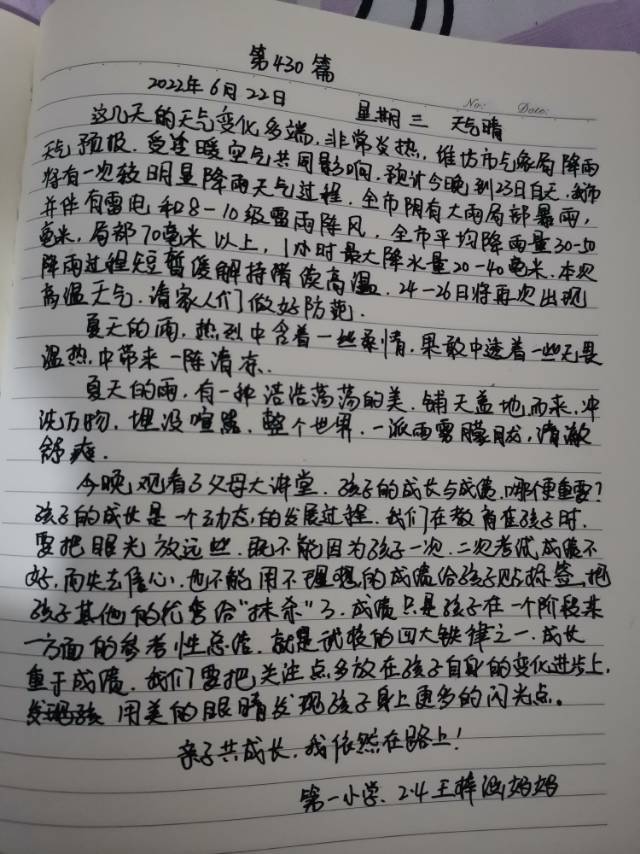 第430篇
No: Date:
2022年6月22日 星期三 天气晴
这几天的天气变化多端,非常炎热,潍坊市气象局降雨
天气预报.受逢暖空气共同影响,预计今晚到23日白天,我市
将有一次较明显降雨天气过程,全市阴有大雨局部暴雨,
并伴有雷电和8-10级雷雨阵风,全市平均降雨量30-50
毫米,局部70毫米以上,1小时最大降水量20-40毫米.本次
降雨过程短暂缓解持续高温,24-26日将再次出现
高温天气.请家人们做好防范.
夏天的雨,热烈中含着一些柔情,果敢中透着一些无畏
温热,中带来一阵清凉.
夏天的雨,有一种浩浩荡荡的美,铺天盖地而来,冲
洗万物,埋没喧嚣,整个世界,一派雨雾朦胧,清澈
舒爽.
今晚观看了父母大讲堂.孩子的成长与成绩,哪个更重要?
孩子的成长是一个动态,的发展过程.我们在教育孩子时,
要把眼光放远些.既不能因为孩子一次.二次考试,成绩不
好,而失去信心,也不能用不理想的成绩给孩子贴标签,把
孩子其他的优秀给"抹杀"了.成绩只是孩子在一个阶段某
一方面的参考性总结.就是武校的四大铁律之一.成长
重于成绩.我们要把关注点多放在孩子自身的变化进步上,
用美的眼睛发现孩子身上更多的闪光点。
亲子共成长,我依然在路上!
第一小学.2.4王梓涵妈妈